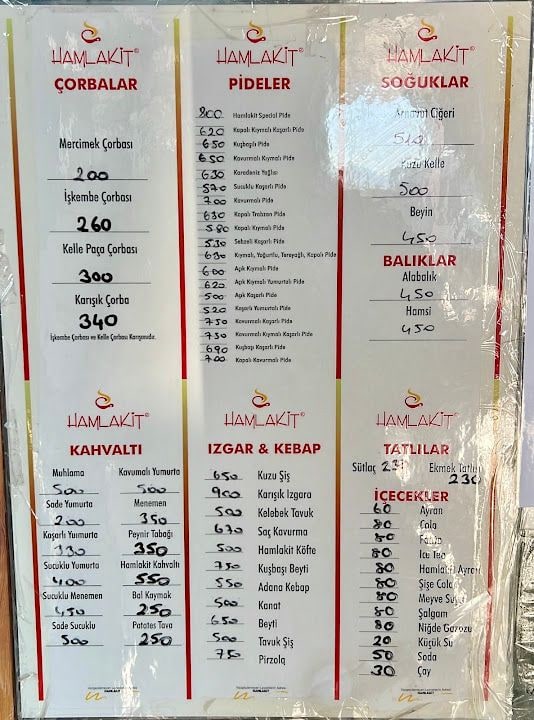 HAMLAKİT®
ÇORBALAR
Mercimek Çorbası
200
İşkembe Çorbası
260
Kelle Paça Çorbası
300
Karışık Çorba
340
İşkembe Çorbası ve Kelle Çorbası Karışımıdır.
HAMLAKİT®
PİDELER
800 Hamlakit Special Pide
620 Kapalı Kıymalı Kaşarlı Pide
650 Kuşbaşılı Pide
650 Kavurmalı Kıymalı Pide
630 Karadeniz Yağlısı
570 Sucuklu Kaşarlı Pide
700 Kavurmalı Pide
630 Kapalı Trabzon Pide
580 Kapalı Kıymalı Pide
530 Sebzeli Kaşarlı Pide
630 Kıymalı, Yoğurtlu, Tereyağlı, Kapalı Pide
600 Açık Kıymalı Pide
620 Açık Kıymalı Yumurtalı Pide
500 Açık Kaşarlı Pide
520 Kaşarlı Yumurtalı Pide
750 Kavurmalı Kaşarlı Pide
750 Kavurmalı Kıymalı Kaşarlı Pide
690 Kuşbaşı Kaşarlı Pide
700 Kapalı Kavurmalı Pide
HAMLAKİT®
SOĞUKLAR
Arnavut Ciğeri
510
Kuzu Kelle
500
Beyin
450
BALIKLAR
Alabalık
450
Hamsi
450
HAMLAKİT®
KAHVALTI
Muhlama Kavurmalı Yumurta
500 500
Sade Yumurta Menemen
200 350
Kaşarlı Yumurta Peynir Tabağı
330 350
Sucuklu Yumurta Hamlakit Kahvaltı
400 550
Sucuklu Menemen Bal Kaymak
450 250
Sade Sucuklu Patates Tava
500 250
HAMLAKİT®
IZGAR & KEBAP
650 Kuzu Şiş
900 Karışık Izgara
500 Kelebek Tavuk
670 Saç Kavurma
500 Hamlakit Köfte
750 Kuşbaşı Beyti
550 Adana Kebap
500 Kanat
650 Beyti
500 Tavuk Şiş
750 Pirzola
HAMLAKİT®
TATLILAR
Sütlaç 23 Ekmek Tatlısı
230
İÇECEKLER
60 Ayran
80 Cola
80 Fanta
80 Ice Tea
80 Hamlakit Ayran
80 Şişe Cola
80 Meyve Suyu
80 Şalgam
80 Niğde Gazozu
20 Küçük Su
50 Soda
30 Çay